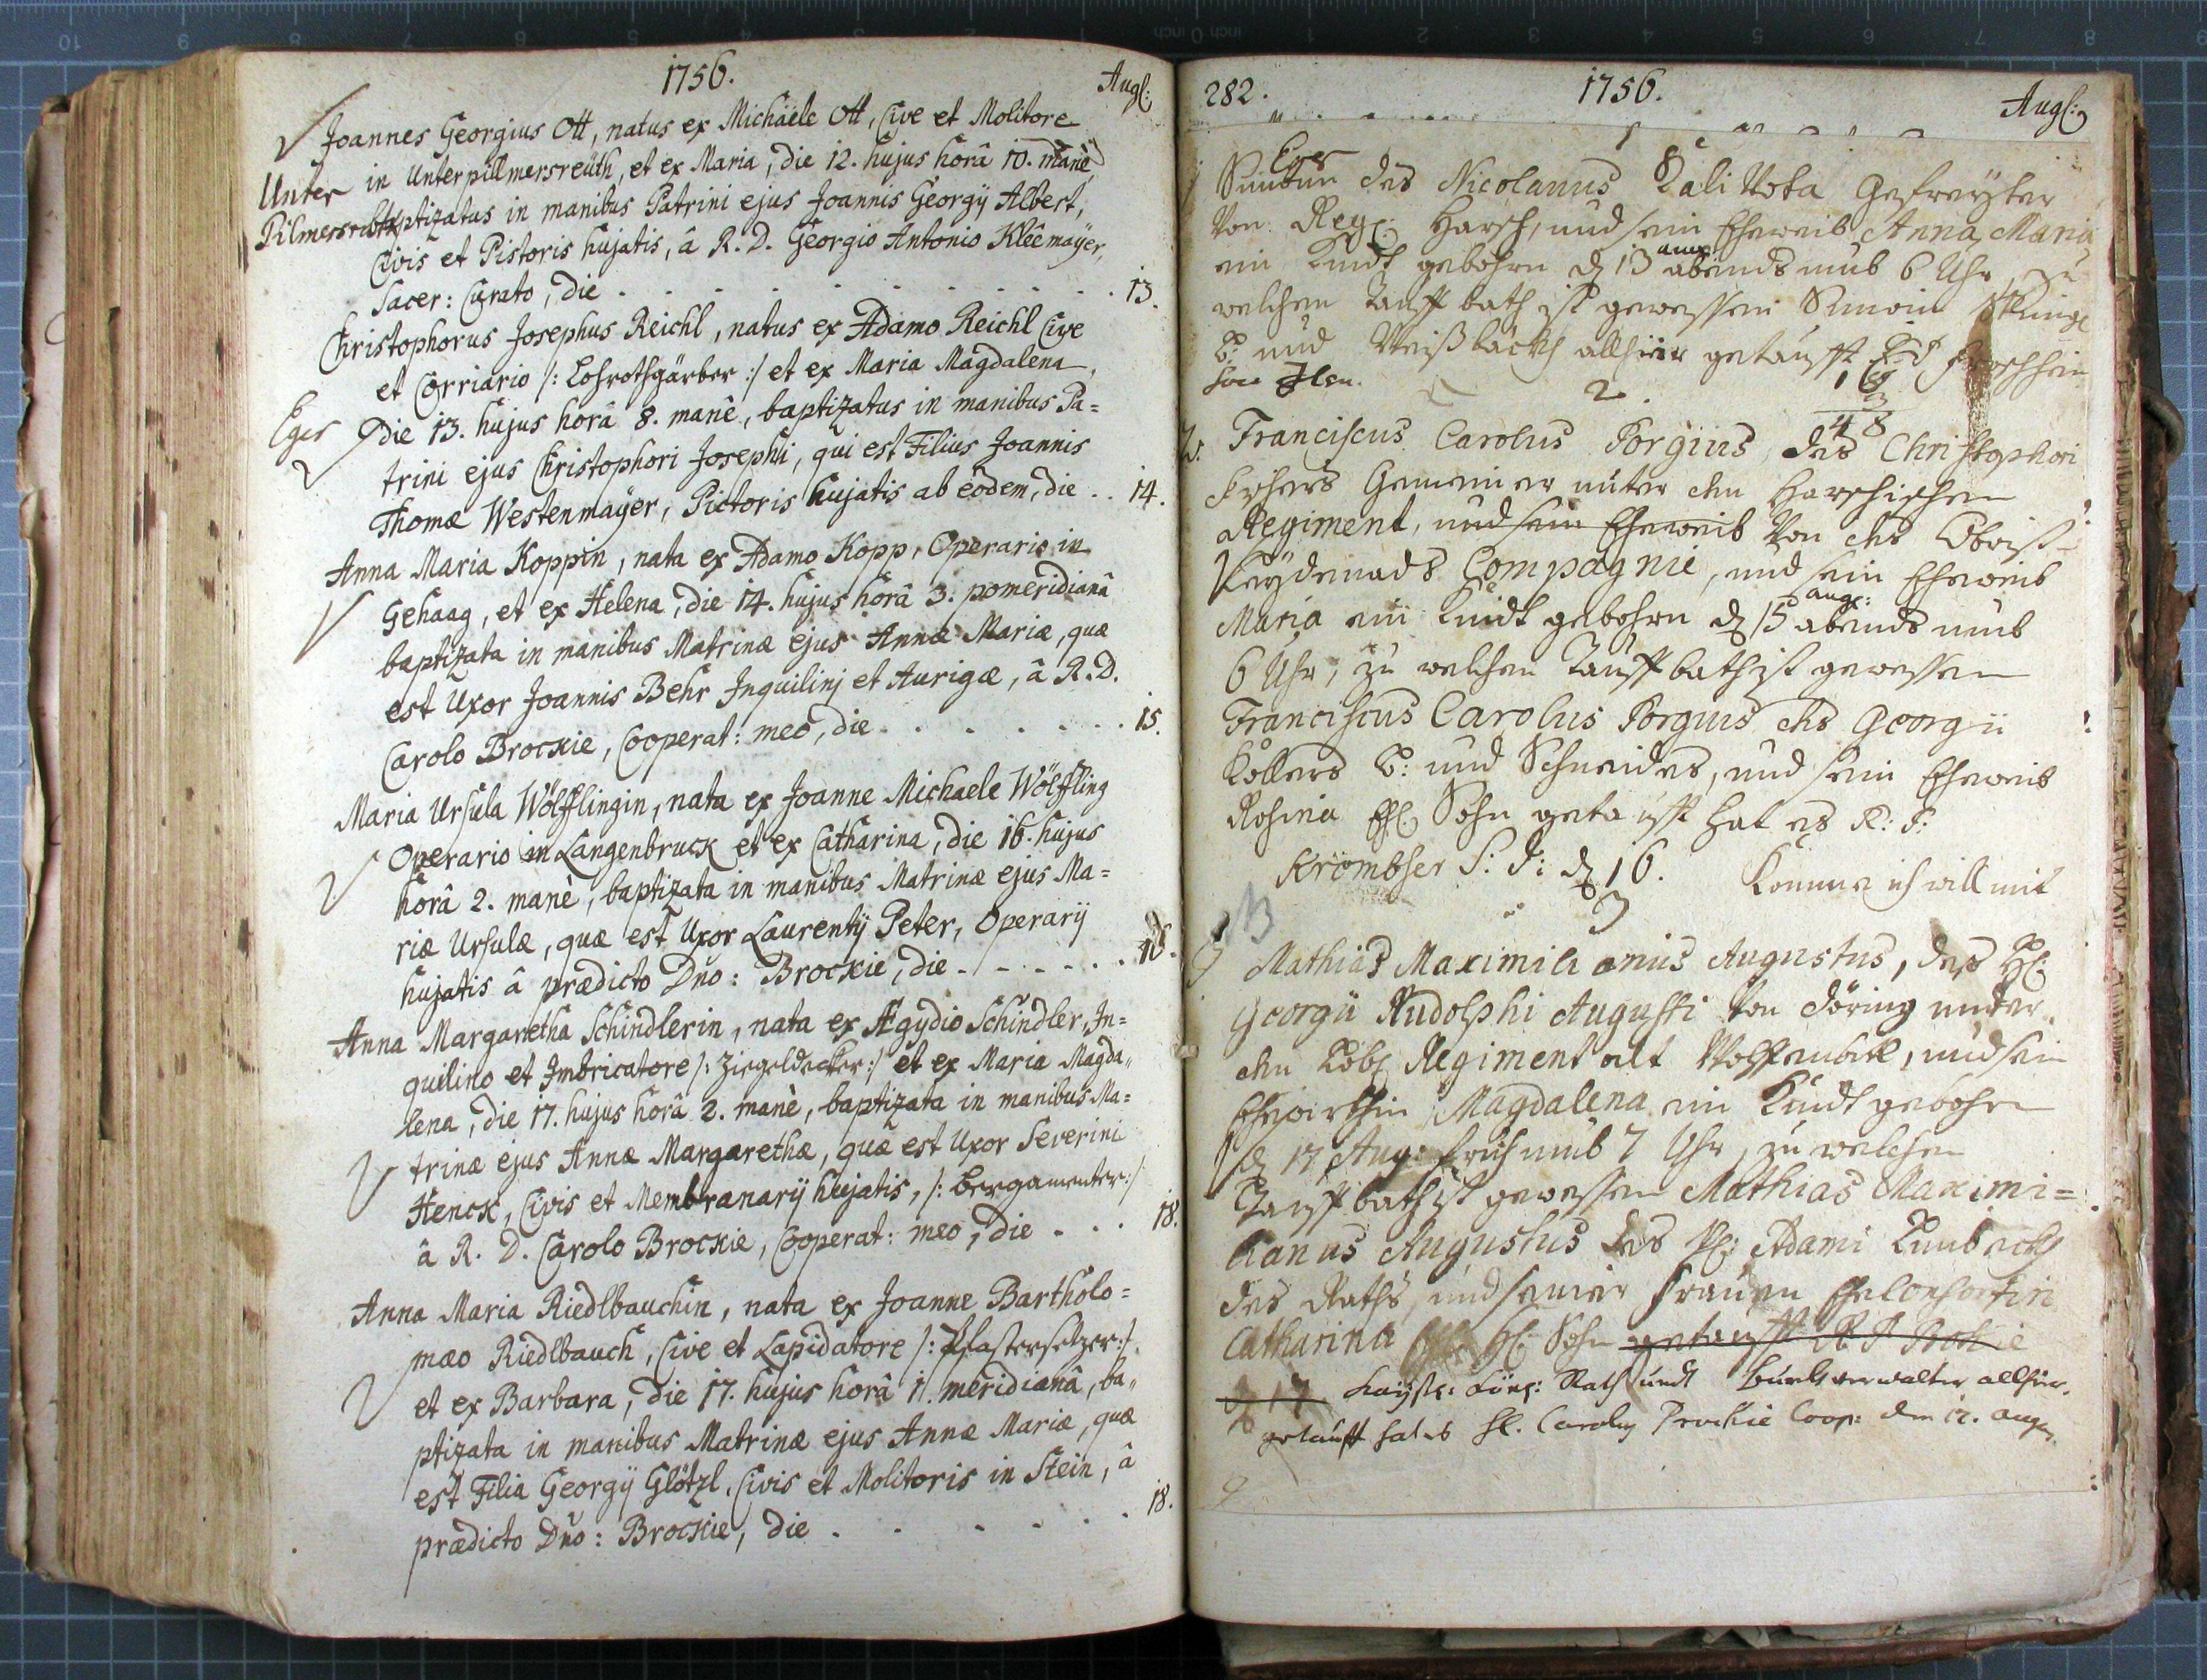 1756.
Aug:
Joannes Georgius Ott, natus ex Michäele Ott, Cive et Molitore
Unter in Unterpillmersreüth, et ex Maria, die 12. hujus horâ 10. manè
Pilmersreith baptizatus in manibus Patrini ejus Joannis Georgÿ Albert,
Civis et Pistoris hujatis, â R. D. Georgio Antonio Kleêmaÿer,
Sacer: Curato, die . . . . . . . . . . . 13.
Christophorus Josephus Reichl, natus ex Adamo Reichl Cive
et Corriario /: Lohrothgärber :/ et ex Maria Magdalena,
Eger die 13. hujus horâ 8. manè, baptizatus in manibus Pa=
trini ejus Christophori Josephi, qui est Filius Joannis
Thomæ Westenmaÿer, Pictoris hujatis ab eodem, die . . 14.
Anna Maria Koppin, nata ex Adamo Kopp, Operario in
Gehaag, et ex Helena, die 14. hujus horâ 3. pomeridianâ
baptizata in manibus Matrinæ ejus Annæ Mariæ, quæ
est Uxor Joannis Behr Inquilinj et Aurigæ, â R. D.
Carolo Brockie, Cooperat: meo, die . . . . . . . 15.
Maria Ursula Wölfflingin, nata ex Joanne Michaele Wölffling
Operario in Langenbruck et ex Catharina, die 16. hujus
horâ 2. manè, baptizata in manibus Matrinæ ejus Ma=
riæ Ursulæ, quæ est Uxor Laurentÿ Peter, Operarÿ
hujatis â prædicto Dño: Brockie, die . . . . . . 16.
Anna Margaretha Schindlerin, nata ex Ægydio Schindler, In=
quilino et Imbricatore /: Ziegeldecker :/ et ex Maria Magda„
lena, die 17. hujus horâ 2. manè, baptizata in manibus Ma=
trinæ ejus Annæ Margarethæ, quæ est Uxor Severini
Henck, Civis et Membranarÿ hujatis, /: Bergamenter :/
â R. D. Carolo Brockie, Cooperat: meo, die . . . 18.
Anna Maria Riedlbauchin, nata ex Joanne Bartholo=
mæo Riedlbauch, Cive et Lapidatore /: Pflastersetzer :/
et ex Barbara, die 17. hujus horâ 11. meridianâ, ba„
ptizata in manibus Matrinæ ejus Annæ Mariæ, quæ
est Filia Georgÿ Glötzl, Civis et Molitoris in Stein, â
prædicto Dño: Brockie, die . . . . . . . 18.
282.
1756.
Aug:
Eger
des Nicolanus Gefreÿter
Von Reg: Harsch, und sein Eheweib Anna Maria
ein Kindt gebohrn d 13 aug abends umb 6 Uhr, zu
welchen Tauff bath ist gewessen Simoin
B: und Weißbäckh allhier getaufft
2.
18
3
48
2. Franciscus Carolus Borgius, des Christophori
Gemeiner unter den Harschischen
Regiment, und sein Eheweib Von des Obrist=
Compagnie, und sein Eheweib
Maria ein Kindt gebohrn d 15 aug: abends umb
6 Uhr, zu welchen Tauff bath ist gewessen
Franciscus Carolus Borgius des Georgii
Kollers B: und Schneiders, und sein Eheweib
Rosina Ehl Sohn getaufft hat es R: P:
Krombser S: J: d 16. Komme ich will mit
3
Mathias Maximilianus Augustus, des Hl:
Georgii Rudolphi Augusti Von Döring unter
den Löbl Regiment alt Wolffenbittl, und sein
Ehewirthin Magdalena ein Kindt gebohrn
d 17 Aug: fruh umb 7 Uhr, zu welchen
Tauff bath ist gewessen Mathias Maximi=
lianus Augustus des Hl: Adami
des Raths, und seiner Frauen Ehelonsortin
Catharina Hl: Sohn getaufft R P Brokie
d 17 Kaÿsl: Köngl: Rath undt Burkverwalter allhier.
getaufft hat es Hl. Carolus Prockie Coop: den 17. aug: